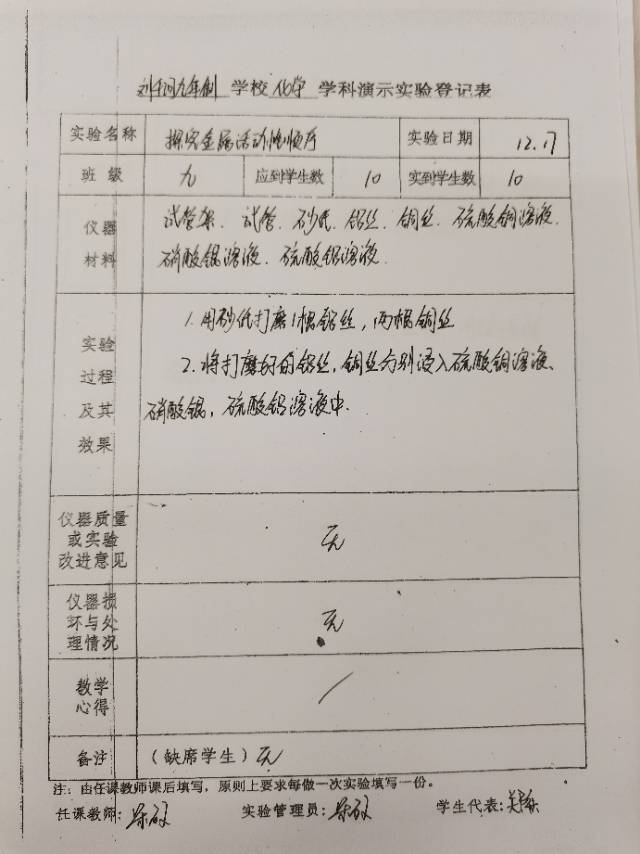 九年制 学校 化学 学科演示实验登记表
实验名称 探究金属活动性顺序 实验日期 12.17
班 级 九 应到学生数 10 实到学生数 10
仪器
材料
试管架、试管、砂纸、铝丝、铜丝、硫酸铜溶液、
硝酸银溶液、硫酸铝溶液
实验
过程
及其
效果
1.用砂纸打磨1根铝丝，两根铜丝
2.将打磨好的铝丝，铜丝分别浸入硫酸铜溶液、
硝酸银，硫酸铝溶液中.
仪器质量
或实验
改进意见
无
仪器损
坏与处
理情况
无
教学
心得
/
备注 (缺席学生) 无
注：由任课教师课后填写，原则上要求每做一次实验填写一份。
任课教师: 实验管理员: 学生代表: